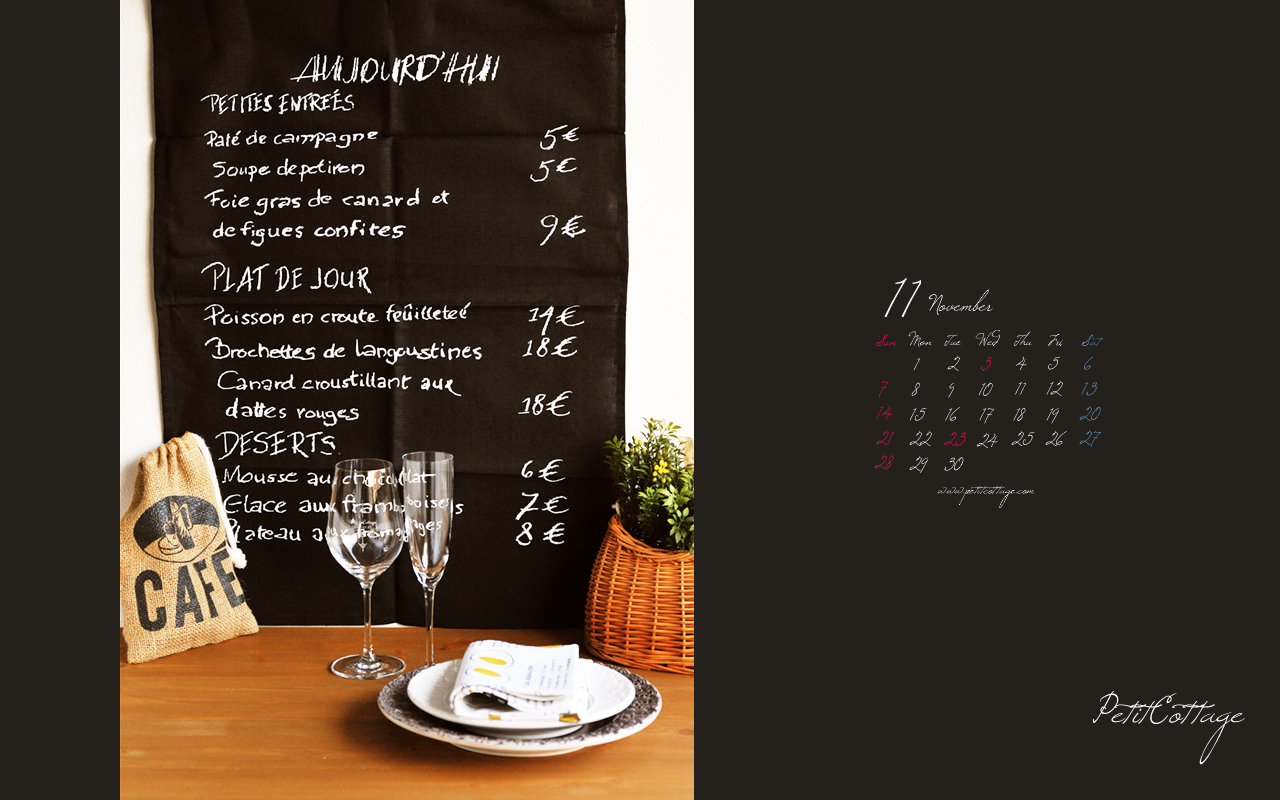 AUJOURD'HUI
PETITES ENTREÉS
Paté de campagne 5€
Soupe de potiron 5€
Foie gras de canard et
de figues confites 9€
PLAT DE JOUR
Poisson en croute feûilleteé 14€
Brochettes de langoustines 18€
Canard croustillant aux
dattes rouges 18€
DESERTS
Mousse au chocolat 6€
Glace aux framboises 7€
Plateau aux fromages 8€
CAFÉ
11 November
Sun Mon Tue Wed Thu Fri Sat
1 2 3 4 5 6
7 8 9 10 11 12 13
14 15 16 17 18 19 20
21 22 23 24 25 26 27
28 29 30
www.petitcottage.com
PetitCottage